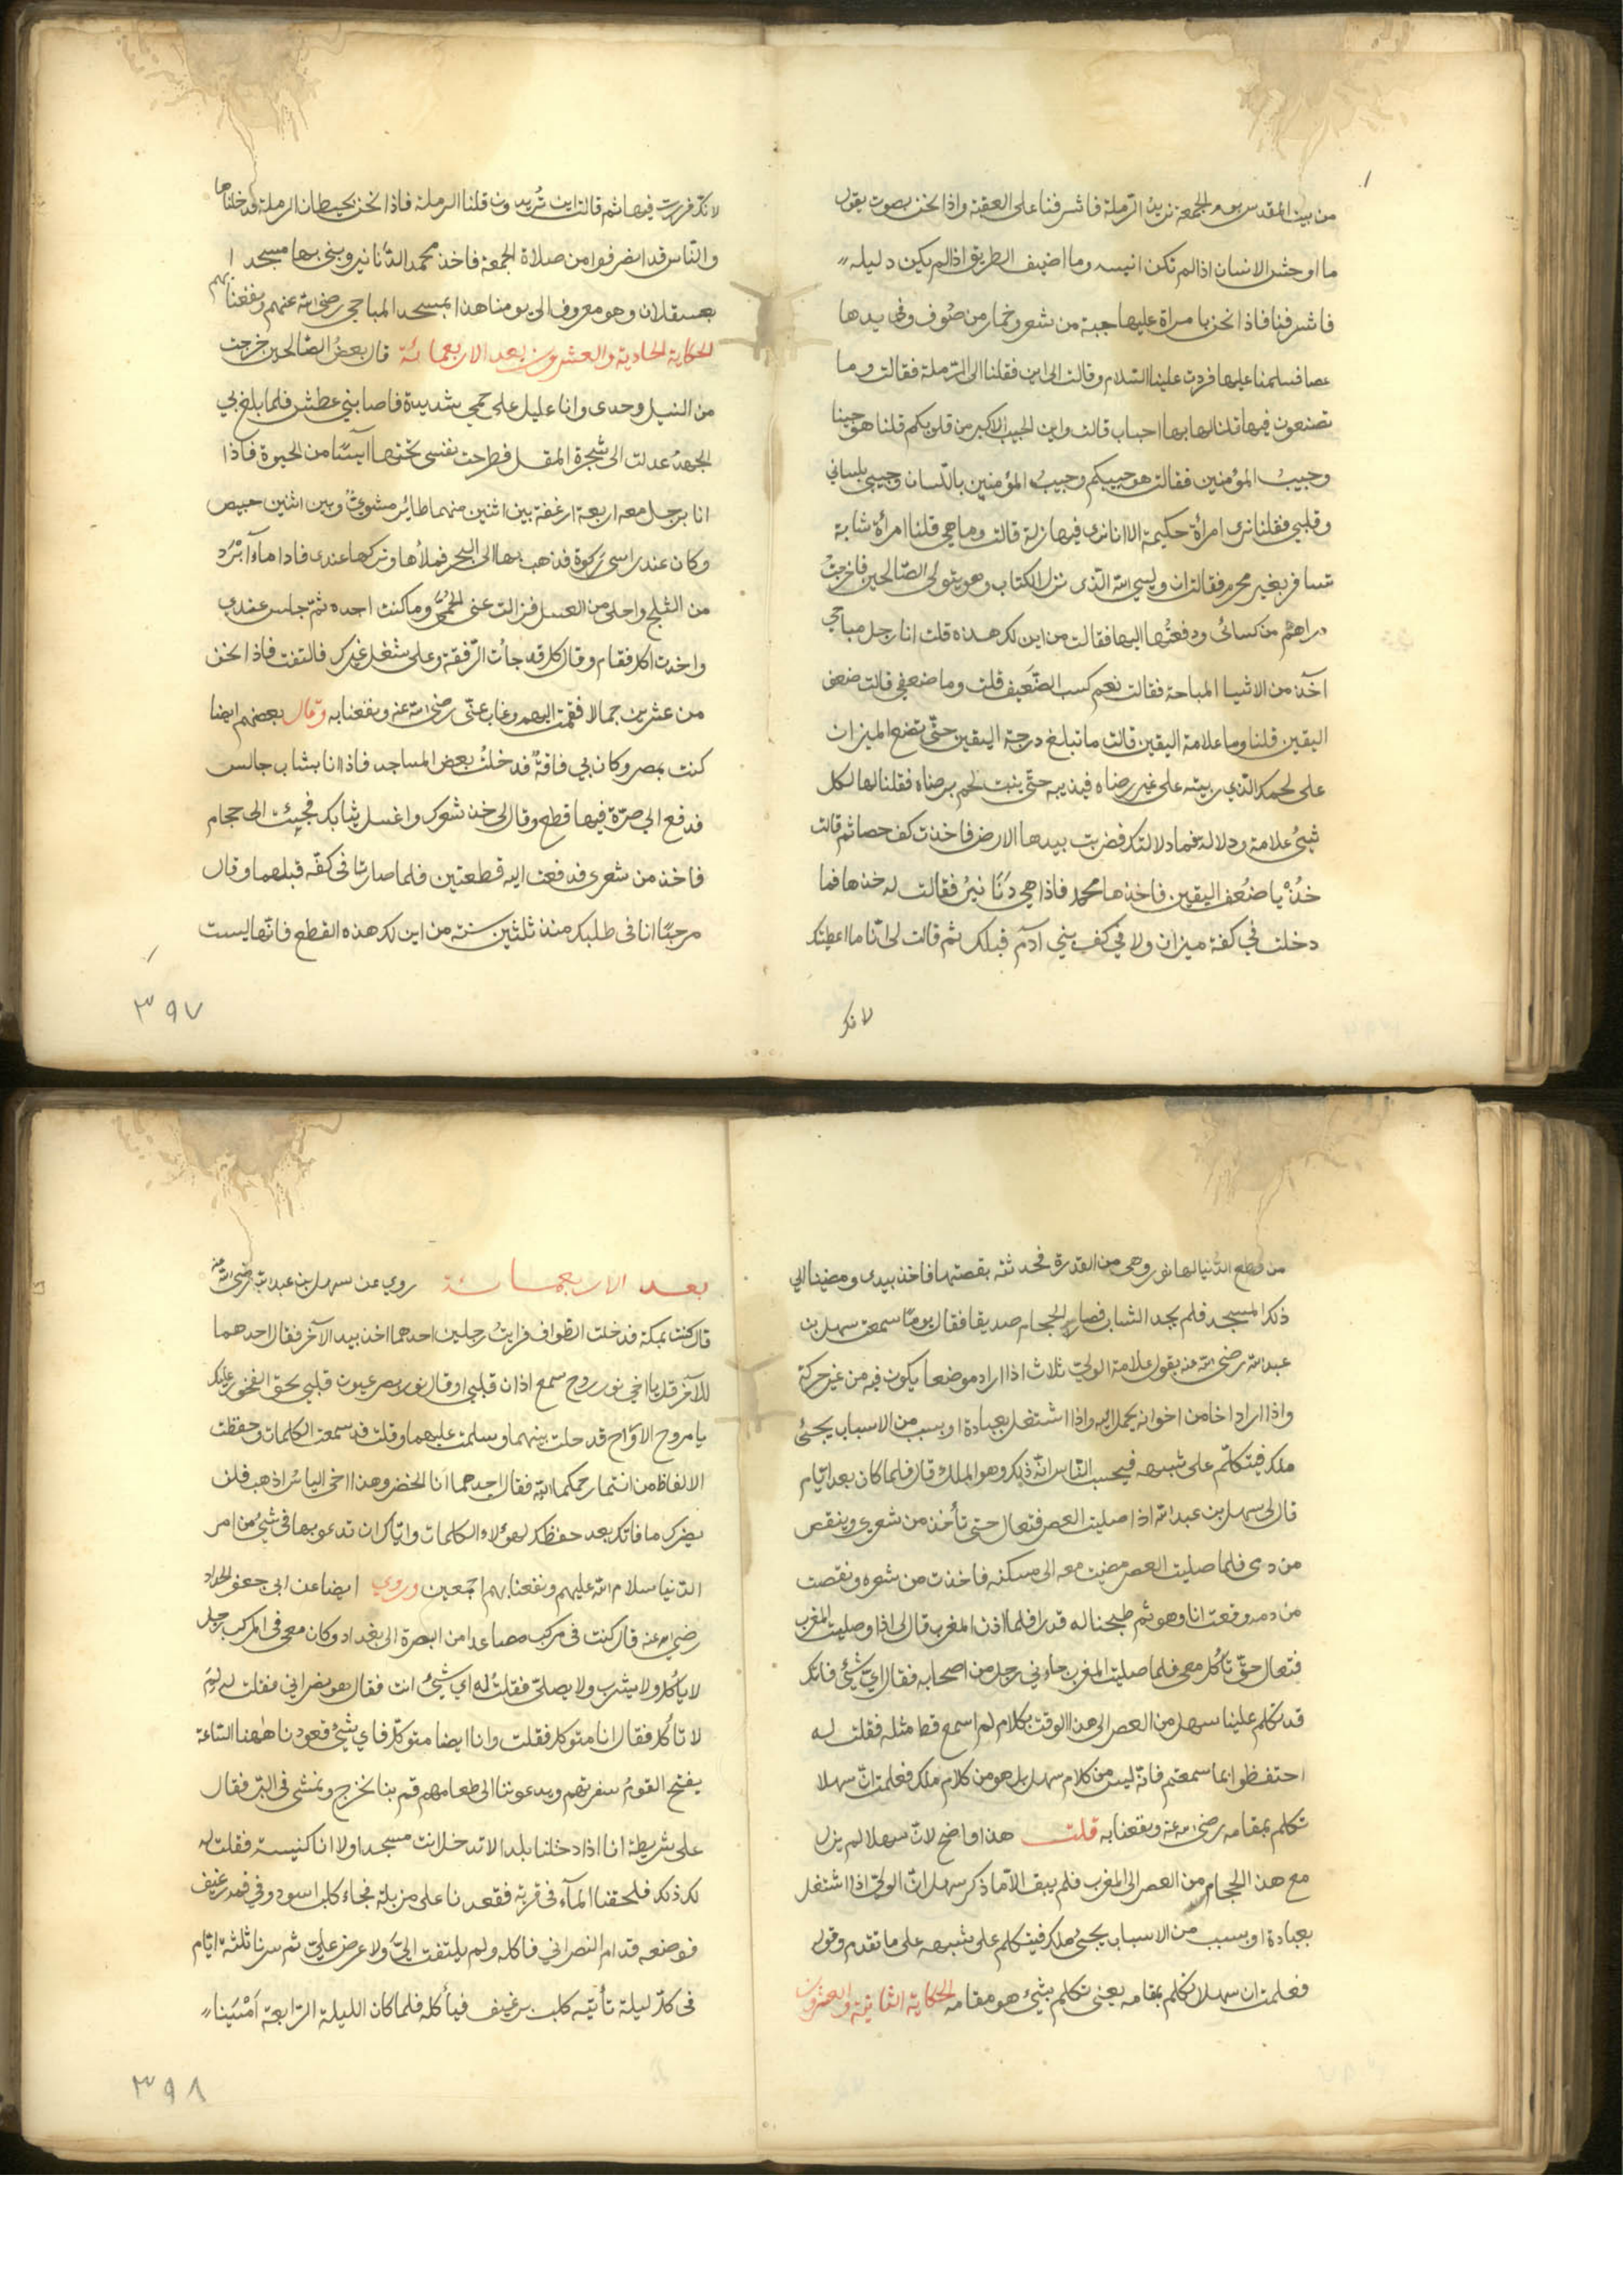 من بيت المقدس يوم الجمعة نريد الرملة فاشرفنا على العقبة واذا نحن بصوت يقول
ما اوحش الانسان اذا لم تكن انيسه وما اضيق الطريق اذا لم يكن دليله
فاشرفنا فاذا نحن بامراة عليها جبة من شعر وخمار من صُوف وفي يدها
عصا فسلمنا عليها فردت علينا السّلام وقالت الى اين فقلنا الى الرّملة فقالت وما
تصنعون فيها قلنا لها بها احباب قالت واين الحبيب الاكبر من قلوبكم قلنا هو حبيبنا
وحبيبُ المؤمنين فقالت هو حبيبكم وحبيبُ المؤمنين باللّسان وحبيبي بلساني
وقلبي فقلنا نرى امرأة حكيمة الا انا نرى فيها زلة قالت وما هي قلنا امرأة شابة
تسافر بغير محرم فقالت ان وليي الله الّذى نزل الكتاب وهو يتولى الصّالحين فاخرجتُ
دراهم من كسائى ودفعتُها اليها فقالت من اين لك هذه قلت انا رجل مباحي
آخذ من الاشيا المباحة فقالت نعم كسب الضّعيف قلت وما ضعفي قالت ضعف
اليقين قلنا وما علامة اليقين قالت ما تبلغ درجة اليقين حتّى تضع الميزان
على لحمك الّذي ربيته على غير رضاه فيذيبه حتّى ينبت لحم برضاه فقلنا لها لكل
شيئ علامة ودلالة فما دلالتك فضربت بيدها الارض فاخذت كف حصا ثم قالت
خُذْ يا ضُعف اليقين فاخذها محمد فاذا هي دَنَا نيرُ فقالت له خذها فما
دخلت في كفة ميزان ولا في كف بني آدم قبلك ثم قالت لى انّا ما اعطيتك
لانك
لانك فررت فيها ثم قالت اين تُريدون قلنا الرملة فاذا نحن بحيطان الرملة فدخلناها
والنّاس قد انصرفوا من صلاة الجمعة فاخذ محمد الدَّنانير وبنى بها مسجدا
بعسقلان وهو معروف الى يومنا هذا بمسجد المباحي رضى الله عنهم ونفعنا بهم
الحكاية الحادية والعشرون بعد الاربعمائة قال بعضُ الصّالحين خرجت
من النيل وحدى وانا عليل على حمي شديدة فاصابني عطش فلما بلغ بي
الجهدُ عدلت الى شجرة المقل فطرحت نفسى تحتها آيسًا من الحيوة فاذا
انا برجل معه اربعة ارغفة بين اثنين منهما طائر مشويٌ وبين اثنين خبيص
وكان عند راسى ركوة فذهب بها الى البحر فملأها وتركها عندى فاذا ماءٓ ابْرَد
من الثلج واحلى من العسل فزالت عنى الحُمىّ وما كنت اجده ثمّ جلس عندي
واخذت اكل فقام وقال كل قد جأت الرّفقة وعلى شغل غيرك فالتفت فاذا نحن
من عشرين جمالا فقمت اليهم وغاب عنّى رضى الله عنه ونفعنا به وقال بعضهم ايضا
كنت بمصر وكان بي فاقةٌ فدخلتُ بعض المساجد فاذا انا بشاب جالس
فدفع الي صرّة فيها قطع وقال لى خذ شعرك واغسل ثيابك فجيئت الى حجام
فاخذ من شعرى فدفعت اليه قطعتين فلما صارتا فى كفّه قبلهما وقال
مرحبًا انا فى طلبك منذ ثلثين سنة من اين لك هذه القطع فانّها ليست
٣٩٧
من قطع الدُّنيا لها نور وهى من القدرة فحدثته بقصتها فاخذ بيدى ومضينا الى
ذلك المسجد فلم يجد الشاب فصار الحجام صديقا فقال يومًا سمعت سهل بن
عبد الله رضى الله عنه يقول علامة الوليّ ثلاث اذا اراد موضعا يكون فيه من غير حركة
واذا اراد اخا من اخوانه يحمل اليه واذا اشتغل بعبادة او بسبب من الاسباب يجيئ
ملك فيتكلّم على شبهه فيحسب النّاس انّه ذلك وهو الملك قال فلما كان بعد ايّام
قال لى سهل بن عبد الله اذا صليت العصر فتعال حتى تأخذ من شعرى وينقص
من دمى فلما صليت العصر مضيت معه الى مسكنه فاخذت من شعره ونقصت
من دمه وقعدت انا وهو ثم طبخنا له قدرا فلما اذن المغرب قال لى اذا وصليت المغرب
فتعال حتّى تأكل معى فلما صليت المغرب جاءنى رجل من اصحابه فقال ايّ شيّ فاتك
قد تكلم علينا سهل من العصر الى هذا الوقت بكلام لم اسمع قط مثله فقلت له
احتفظوا بما سمعتم فانّه ليس من كلام سهل بل هو من كلام ملك فعلمت انّ سهلا
تكلم بمقامه رضى الله عنه ونفعنا به قلت هذا واضح لانّ سهلا لم يزل
مع هذا الحجام من العصر الى المغرب فلم يبق الاّ ما ذكر سهل انّ الوليّ اذا اشتغل
بعبادة او بسبب من الاسباب يجيئ ملك فيتكلم على شبهه على ما تقدم وقوله
فعلمت ان سهلا تكلم بمقامه يعنى تكلم بشيئ هو مقامه الحكاية الثانية والعشرون
بعد الاربعمائة روي عن سهل بن عبد الله رضى الله عنه
قال كنت بمكة فدخلت الطواف فرايتُ رجلين احدهما اخذ بيد الآخر فقال احدهما
للآخر قل يا اخي نور روح سمع اذان قلبي او قال نور بصر عيون قلبي بحق
يا مروح الارواح فدخلت بينهما وسلمت عليهما وقلت قد سمعت الكلمات وحفظت
الالفاظ من انتما رحمكما الله فقال احدهما انا الخضر وهذا اخى الياس اذهب فلن
يضرك ما فاتك بعد حفظك لهؤلاء الكلمات واياك ان تدعو بها فى شيئ من امر
الدّنيا سلام الله عليهم ونفعنا بهم اجمعين وروي ايضا عن ابى جعفر الحداد
رضى الله عنه قال كنت فى مركب مصاعدا من البصرة الى بغداد وكان معى فى المركب رجل
لا يأكل ولا يشرب ولا يصلّى فقلتُ له اي شيئ انت فقال هو نصراني فقلت له لِمَ
لا تأكل فقال انا متوكل فقلت وانا ايضا متوكّل فاي شيئ قعودنا هٰهنا السّاعة
يفتح القومُ سفرتهم ويدعوننا الى طعامهم قم بنا نخرج ونمشى فى البرّ فقال
على شريطة انا اذا دخلنا بلدا لا تدخل انت مسجدا ولا انا كنيسة فقلت له
لك ذلك فلحقنا المآء فى قرية فقعدنا على مزبلة فجاء كلب اسود وفي فمه رغيف
فوضعه قدام النصراني فاكله ولم يلتفت اليّ ولا عرض عليّ ثم سرنا ثلثة ايّام
فى كلّ ليلة تأتيه كلب برغيف فيأكله فلما كان الليلة الرّابعة اَمْسَينا
٣٩٨